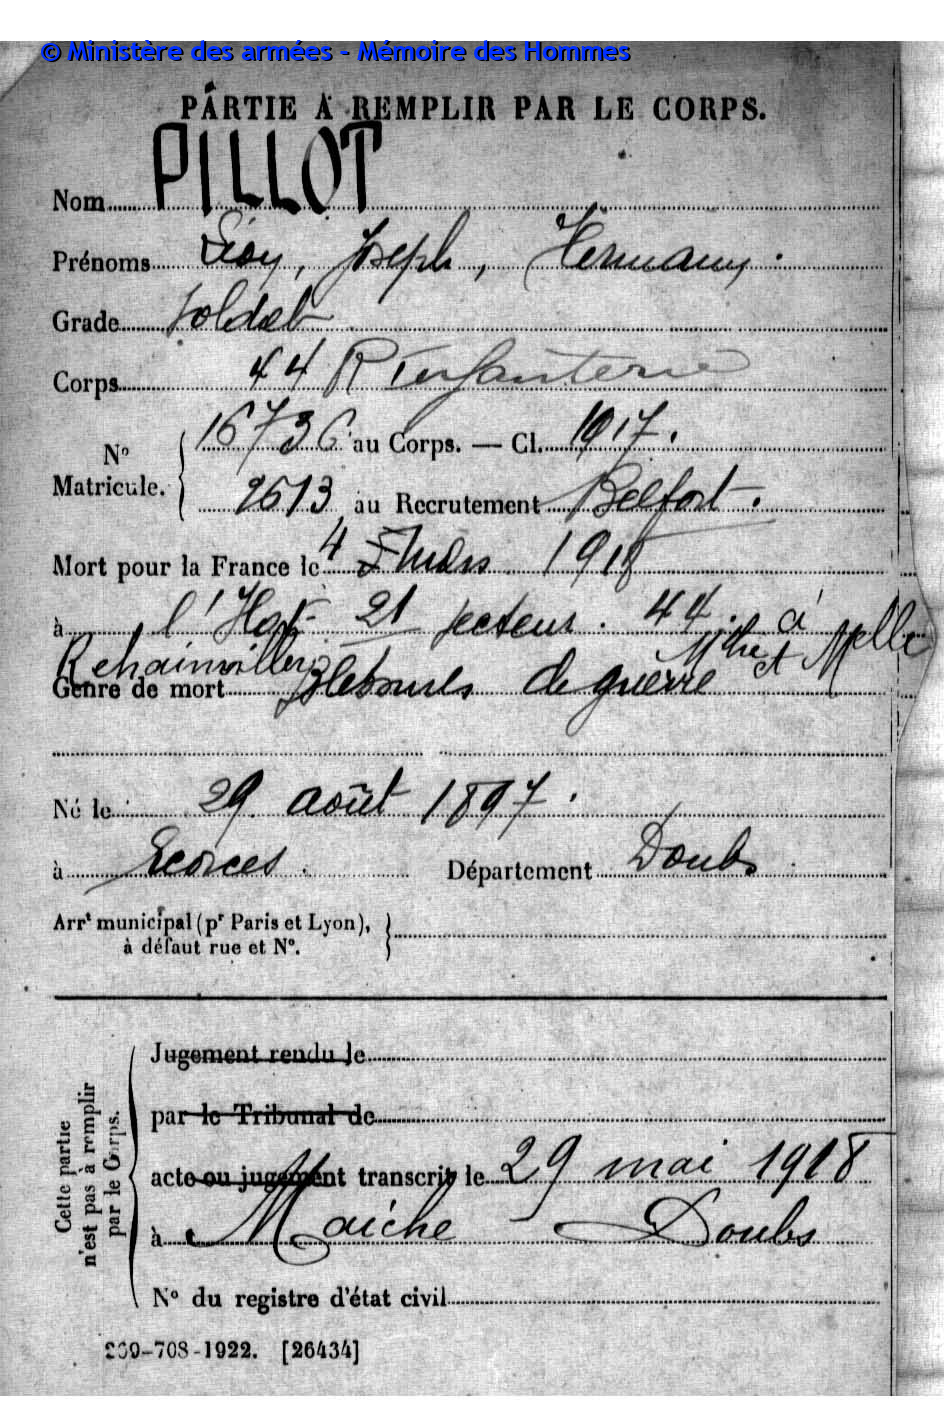 © Ministère des armées - Mémoire des Hommes
PARTIE À REMPLIR PAR LE CORPS.
Nom PILLOT
Prénoms Léon, Joseph, Hermann.
Grade Soldat
Corps 44 R Infanterie
N° Matricule. 16736 au Corps. — Cl. 1917.
2613 au Recrutement Belfort.
Mort pour la France le 4 mars 1918
à l'Hop. 21 secteur. 44. à
Rehainviller Mthe et Mselle
Genre de mort Blessures de guerre
Né le 29 août 1897.
à Ecorces. Département Doubs
Arrt municipal (pr Paris et Lyon),
à défaut rue et N°.
Cette partie
n'est pas à remplir
par le Corps.
Jugement rendu le
par le Tribunal de
acte ou jugement transcrit le 29 mai 1918
à Maîche Doubs
N° du registre d'état civil
269-708-1922. [26434]